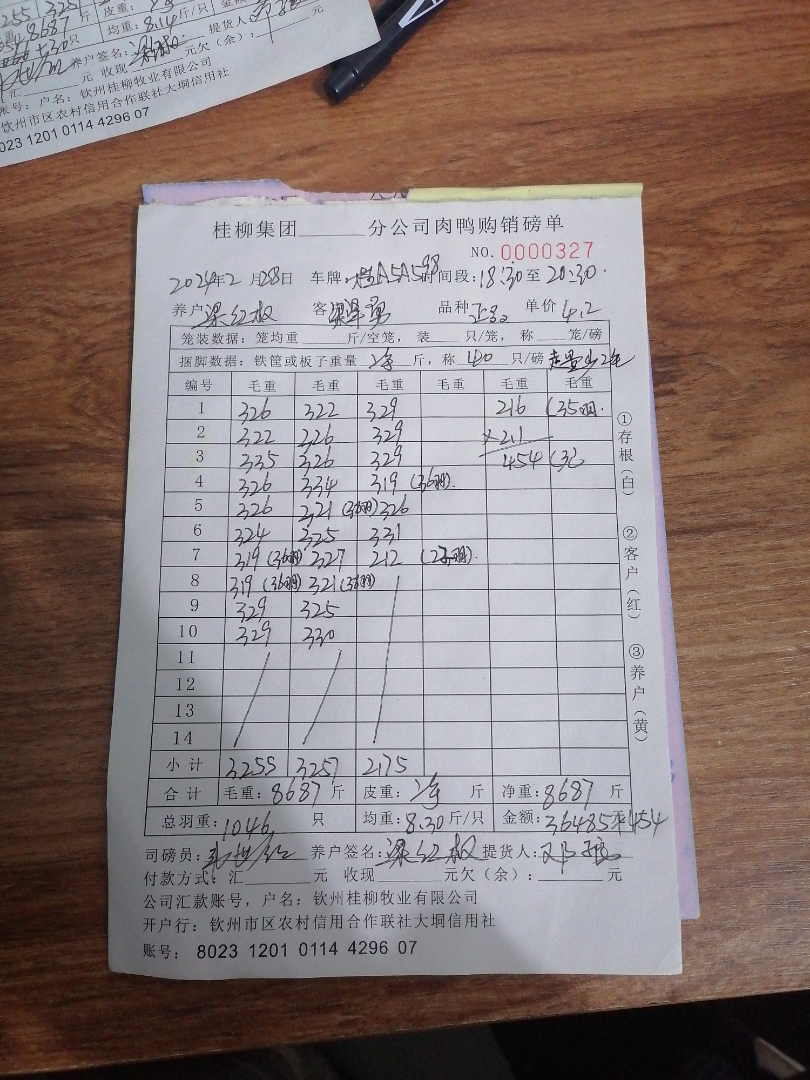 8687 斤 皮重：
只 均重：8.14斤/只 提货人
养户签名： 元欠（余）： 元
汇 元 收现
账号：户名：钦州桂柳牧业有限公司
钦州市区农村信用合作联社大垌信用社
8023 1201 0114 4296 07
桂柳集团______分公司肉鸭购销磅单
NO. 0000327
2024年2月28日 车牌：桂A5A598 时间段：18:30至20:30.
养户梁红权 客 品种 单价4.2
笼装数据：笼均重 斤/空笼，装 只/笼，称 笼/磅
捆脚数据：铁筐或板子重量 净 斤，称 40 只/磅
编号 毛重 毛重 毛重 毛重 毛重 毛重
1 326 322 329 216 (35羽.
2 322 326 329 ×2.1
3 335 326 329 454
4 326 334 319 (36羽).
5 326 321 (36羽) 326
6 324 325 331
7 319 (36羽) 327 212
8 319 (36羽) 321 (36羽)
9 329 325
10 329 330
11
12
13
14
小计 3255 3257 2175
合计 毛重：8687斤 皮重：净 斤 净重：8687 斤
总羽重：1046 只 均重：8.30斤/只 金额：36485 元 454
司磅员： 养户签名：梁红权 提货人：
付款方式：汇______元 收现______元欠（余）：______元
公司汇款账号，户名：钦州桂柳牧业有限公司
开户行：钦州市区农村信用合作联社大垌信用社
账号：8023 1201 0114 4296 07
①存根（白）
②客户（红）
③养户（黄）